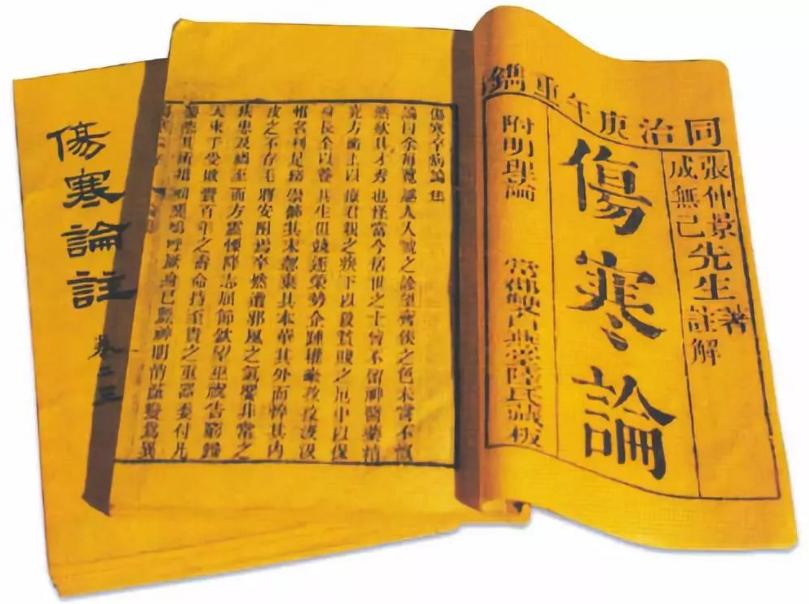 同治庚午重鐫
張仲景
成無己先生著
註解
傷寒論
附明理論 常郡雙白燕堂陸氏藏板
傷寒卒病論集
論曰余每覽越人入虢之診望齊侯之色未嘗不慨
然歎其才秀也怪當今居世之士曾不留神醫藥精
究方術上以療君親之疾下以救貧賤之厄中以保
身長全以養其生但競逐榮勢企踵權豪孜孜汲汲
惟名利是務崇飾其末忽棄其本華其外而悴其內
皮之不存毛將安附焉卒然遭邪風之氣嬰非常之
疾患及禍至而方震慄降志屈節欽望巫祝告窮歸
天束手受敗賫百年之壽命持至貴之重器委付凡
醫恣其所措咄嗟嗚呼厥身已斃神明消滅變為異
傷寒論註
卷二三